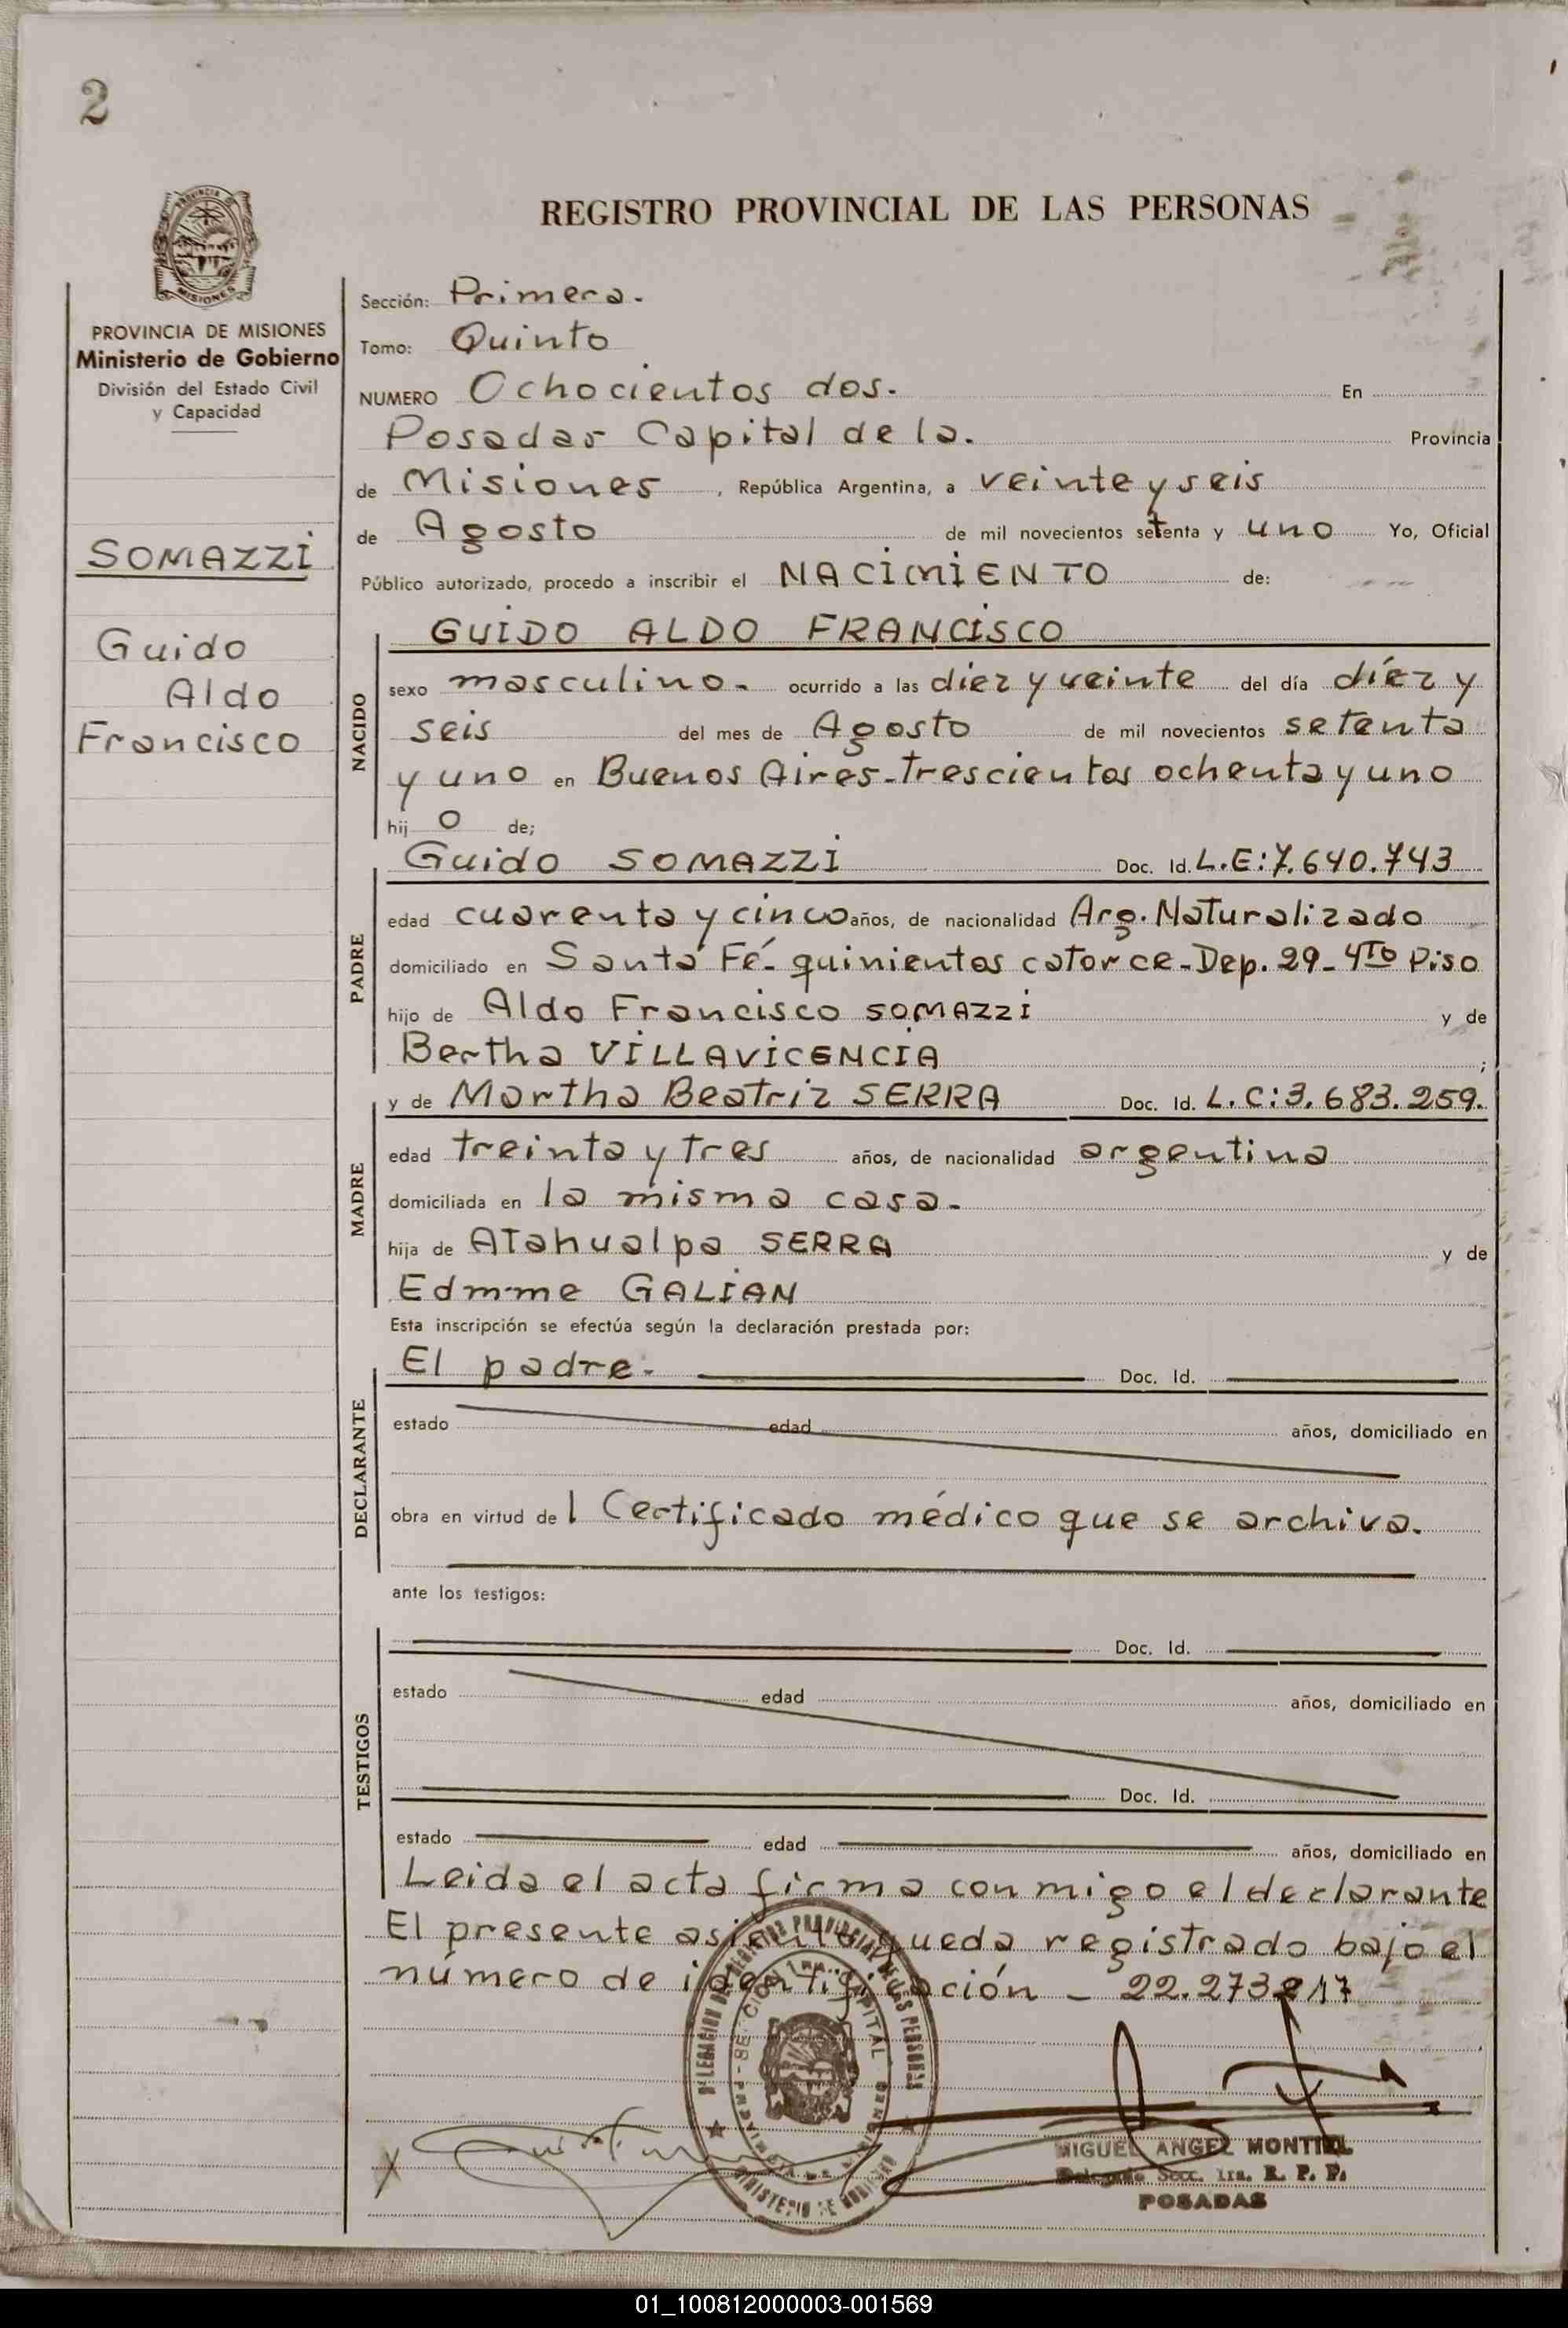 2
REGISTRO PROVINCIAL DE LAS PERSONAS
MISIONES
PROVINCIA DE MISIONES
Ministerio de Gobierno
División del Estado Civil
y Capacidad
SOMAZZI
Guido
Aldo
Francisco
Sección: Primera.
Tomo: Quinto
NUMERO Ochocientos dos. En
Posadas Capital de la. Provincia
de Misiones, República Argentina, a veinte y seis
de Agosto de mil novecientos setenta y uno Yo, Oficial
Público autorizado, procedo a inscribir el NACIMIENTO de:
NACIDO
GUIDO ALDO FRANCISCO
sexo masculino. ocurrido a las diez y veinte del día diez y
seis del mes de Agosto de mil novecientos setenta
y uno en Buenos Aires-trescientos ochenta y uno
hij o de;
PADRE
Guido SOMAZZI Doc. Id. L.E:7.640.743
edad cuarenta y cinco años, de nacionalidad Arg. Naturalizado
domiciliado en Santa Fé- quinientos catorce-Dep. 29-4to Piso
hijo de Aldo Francisco SOMAZZI y de
Bertha VILLAVICENCIA ;
MADRE
y de Martha Beatriz SERRA Doc. Id. L.C:3.683.259.
edad treinta y tres años, de nacionalidad argentina
domiciliada en la misma casa.
hija de Atahualpa SERRA y de
GALIAN
Esta inscripción se efectúa según la declaración prestada por:
DECLARANTE
El padre. Doc. Id.
estado edad años, domiciliado en
obra en virtud de l Certificado médico que se archiva.
ante los testigos:
TESTIGOS
Doc. Id.
estado edad años, domiciliado en
Doc. Id.
estado edad años, domiciliado en
Leida el acta firma conmigo el declarante
El presente asiento queda registrado bajo el
número de identificación - 22.273
MIGUEL ANGEL MONTIEL
Delegado Secc. 1ra. R. P. P.
POSADAS
01_100812000003-001569